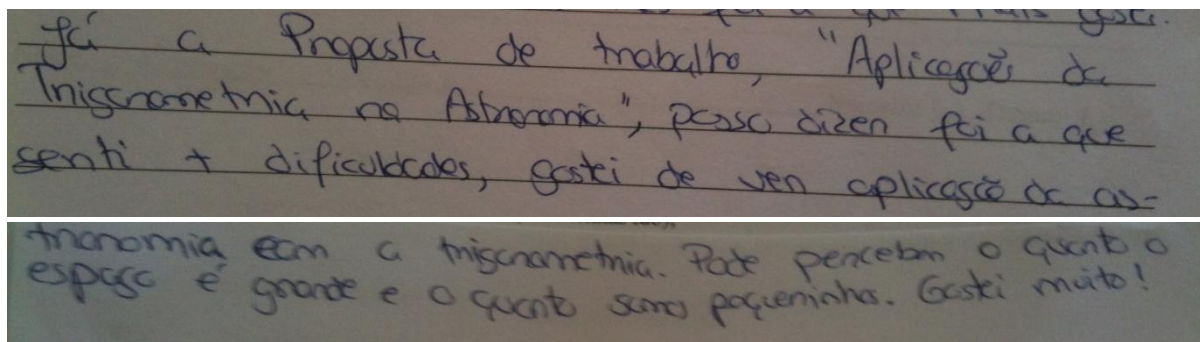 foi a que mais gostei.
Já a Proposta de trabalho, "Aplicações da
Trigonometria na Astronomia", posso dizer foi a que
senti + dificuldades, gostei de ver aplicação da as-
tronomia com a trigonometria. Pode perceber o quanto o
espaço é grande e o quanto somos pequeninhos. Gostei muito!